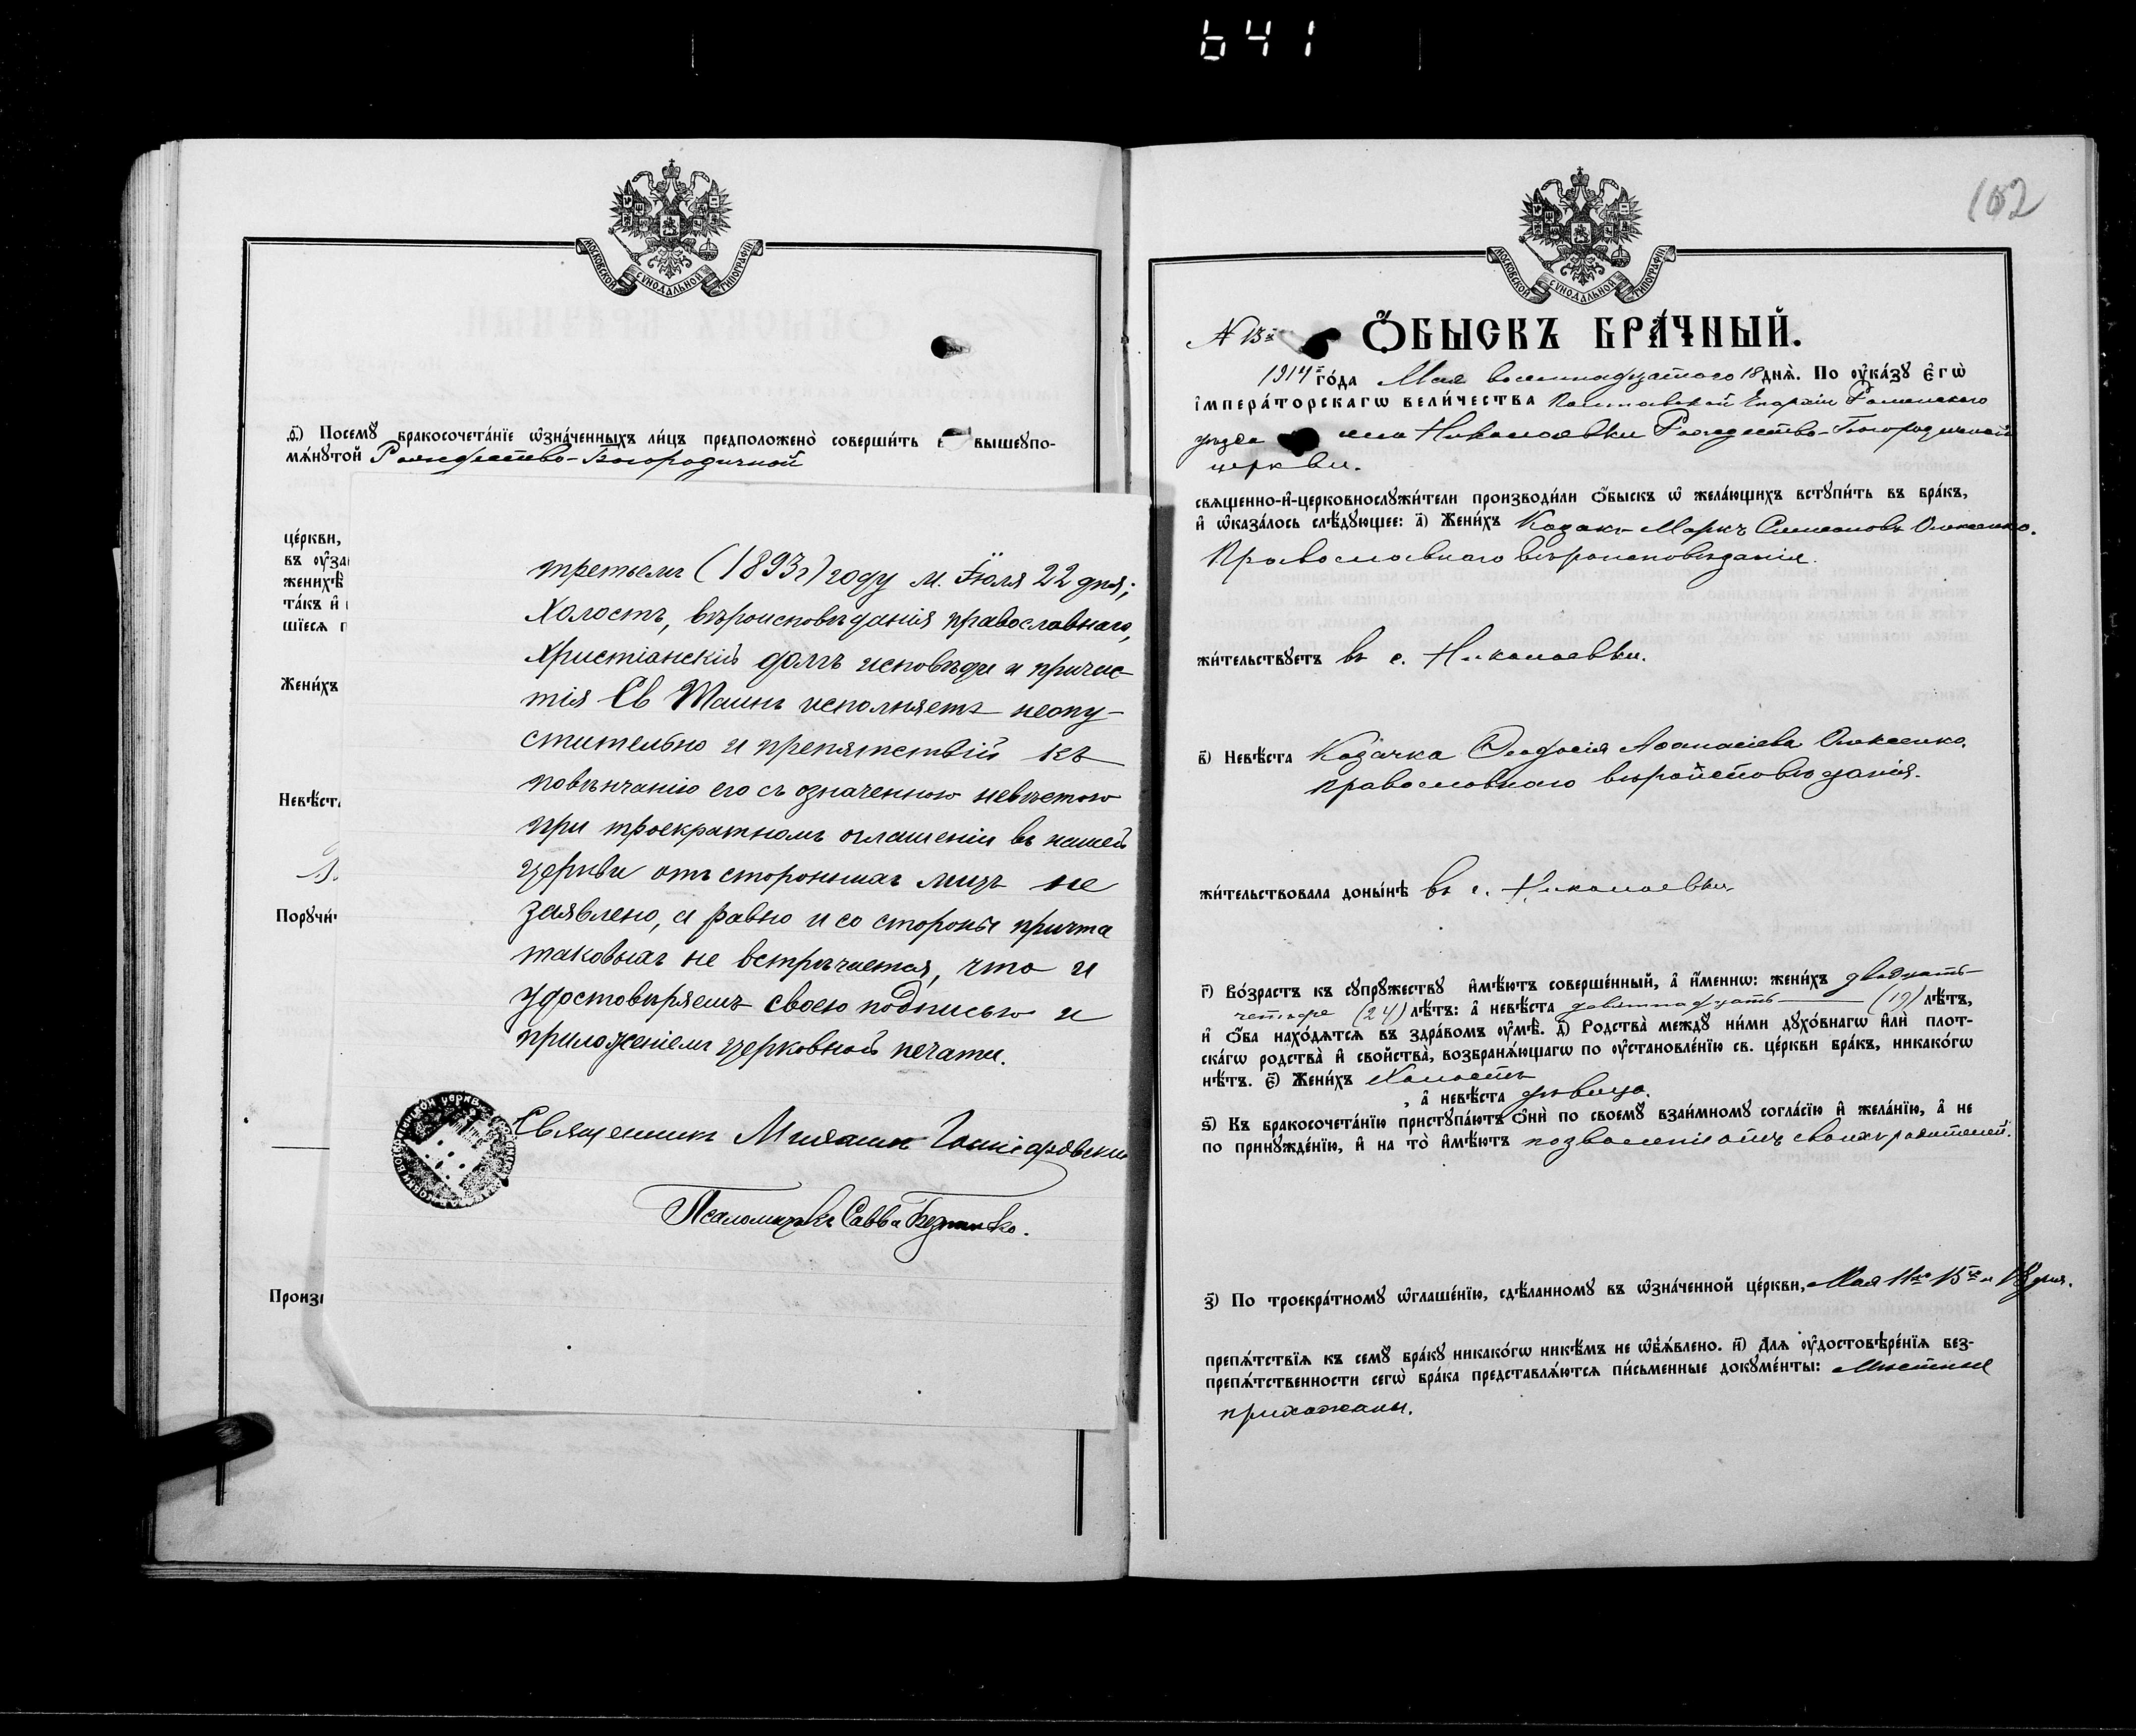 641
МОСКОВСКОЙ СѴНОДАЛЬНОЙ ТИПОГРАФІИ
Посемꙋ̀ бракосочета́нїе ѡ҆зна́ченныхъ ли́цъ предположено̀ соверши́ть вышеꙋпо-
мѧ́нꙋтой Рождество-Богородичной
це́ркви,
въ
жених
та́къ и҆
шїесѧ
Жени́хъ
Невѣ́ст
Порꙋчи́
Произ
третьемъ (1893г) году м. Іюля 22 дня;
Холостъ, вѣроисповѣданія православнаго,
Христіанскій долгъ исповѣди и причас-
тія Св Таинъ исполняетъ неопу-
стительно и препятствій къ
повѣнчанію его съ означенною невѣстою
при троекратномъ оглашеніи въ нашей
Церкви отъ стороннихъ лицъ не
заявлено, а равно и со стороны причта
таковыхъ не встрѣчается, что и
удостовѣряемъ своею подписью и
приложеніемъ церковной печати.
Священникъ
Псаломщикъ Савва
102
МОСКОВСКОЙ СѴНОДАЛЬНОЙ ТИПОГРАФІИ
N 13й ѺБЫСКЪ БРА́ЧНЫЙ.
1914 го́да Мая восемнадцатого 18 днѧ̀. По ᲂу҆ка́зꙋ є҆гѡ̀
і҆мпера́торскагѡ вели́чества Полтавской Епархіи Роменскаго
уѣзда села Николаевки Рождество-Богородичной
церкви.
свѧщенно-и҆-церковнослꙋжи́тели производи́ли ѻ҆́быскъ ѡ҆ жела́ющихъ встꙋпи́ть въ бра́къ,
и҆ ѡ҆каза́лось слѣ́дꙋющее: а҃) Жени́хъ Козакъ Маркъ Симеоновъ Олексенко.
Православнаго вѣроисповѣданія.
жи́тельствꙋетъ въ с. Николаевки.
в҃) Невѣ́ста Козачка Феодосія Афанасіева Олексенко,
православнаго вѣроисповѣданія.
жи́тельствовала доны́нѣ въ с. Николаевки
г҃) Во́зрастъ къ сꙋпрꙋ́жествꙋ и҆мѣ́ютъ соверше́нный, а҆ и҆́менно: жени́хъ двадцать
четыре (24) лѣ́тъ: а҆ невѣ́ста девятнадцать (19) лѣ́тъ,
и҆ ѻ҆́ба нахо́дѧтсѧ въ здра́вомъ ᲂу҆мѣ̀. д҃) Родства̀ междꙋ̀ ни́ми дꙋхо́внагѡ и҆лѝ пло́т-
скагѡ родства̀ и҆ свойства̀, возбранѧ́ющагѡ по ᲂу҆становле́нїю св. це́ркви бра́къ, никако́гѡ
нѣ́тъ. є҃) Жени́хъ Холостъ
, а҆ невѣ́ста дѣвица.
ѕ҃) Къ бракосочета́нїю пристꙋпа́ютъ ѻ҆нѝ по своемꙋ̀ взаи́мномꙋ согла́сїю и҆ жела́нїю, а҆ не
по принꙋжде́нїю, и҆ на то̀ и҆мѣ́ютъ позволеніе отъ своихъ родителей.
з҃) По троекра́тномꙋ ѡ҆глаше́нїю, сдѣ́ланномꙋ въ ѡ҆зна́ченной це́ркви, Мая 11го 15го и 18 дня.
препѧ́тствїѧ къ семꙋ̀ бра́кꙋ никако́гѡ никѣ́мъ не ѡ҆б̾ѧ́влено. и҃) Для ᲂу҆достовѣре́нїѧ без-
препѧ́тственности сегѡ̀ бра́ка представлѧ́ютсѧ пи́сьменные докꙋме́нты: Мѣстные
прихожаны.